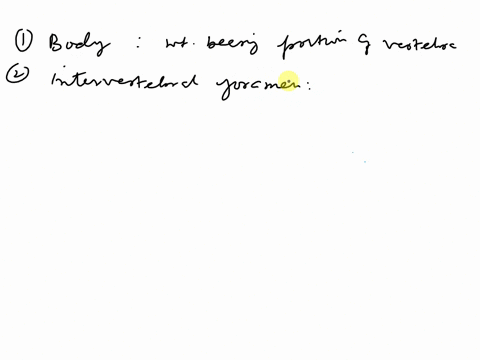 ① Body : wt. bearing portion of vertebra
② intervertebral foramen :